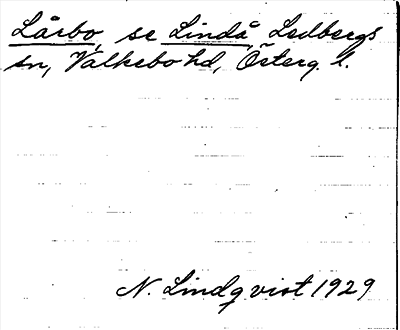 Lårbo, se Lindå Ledbergs
sn, Valkebo hd, Österg. l.
N. Lindqvist 1929